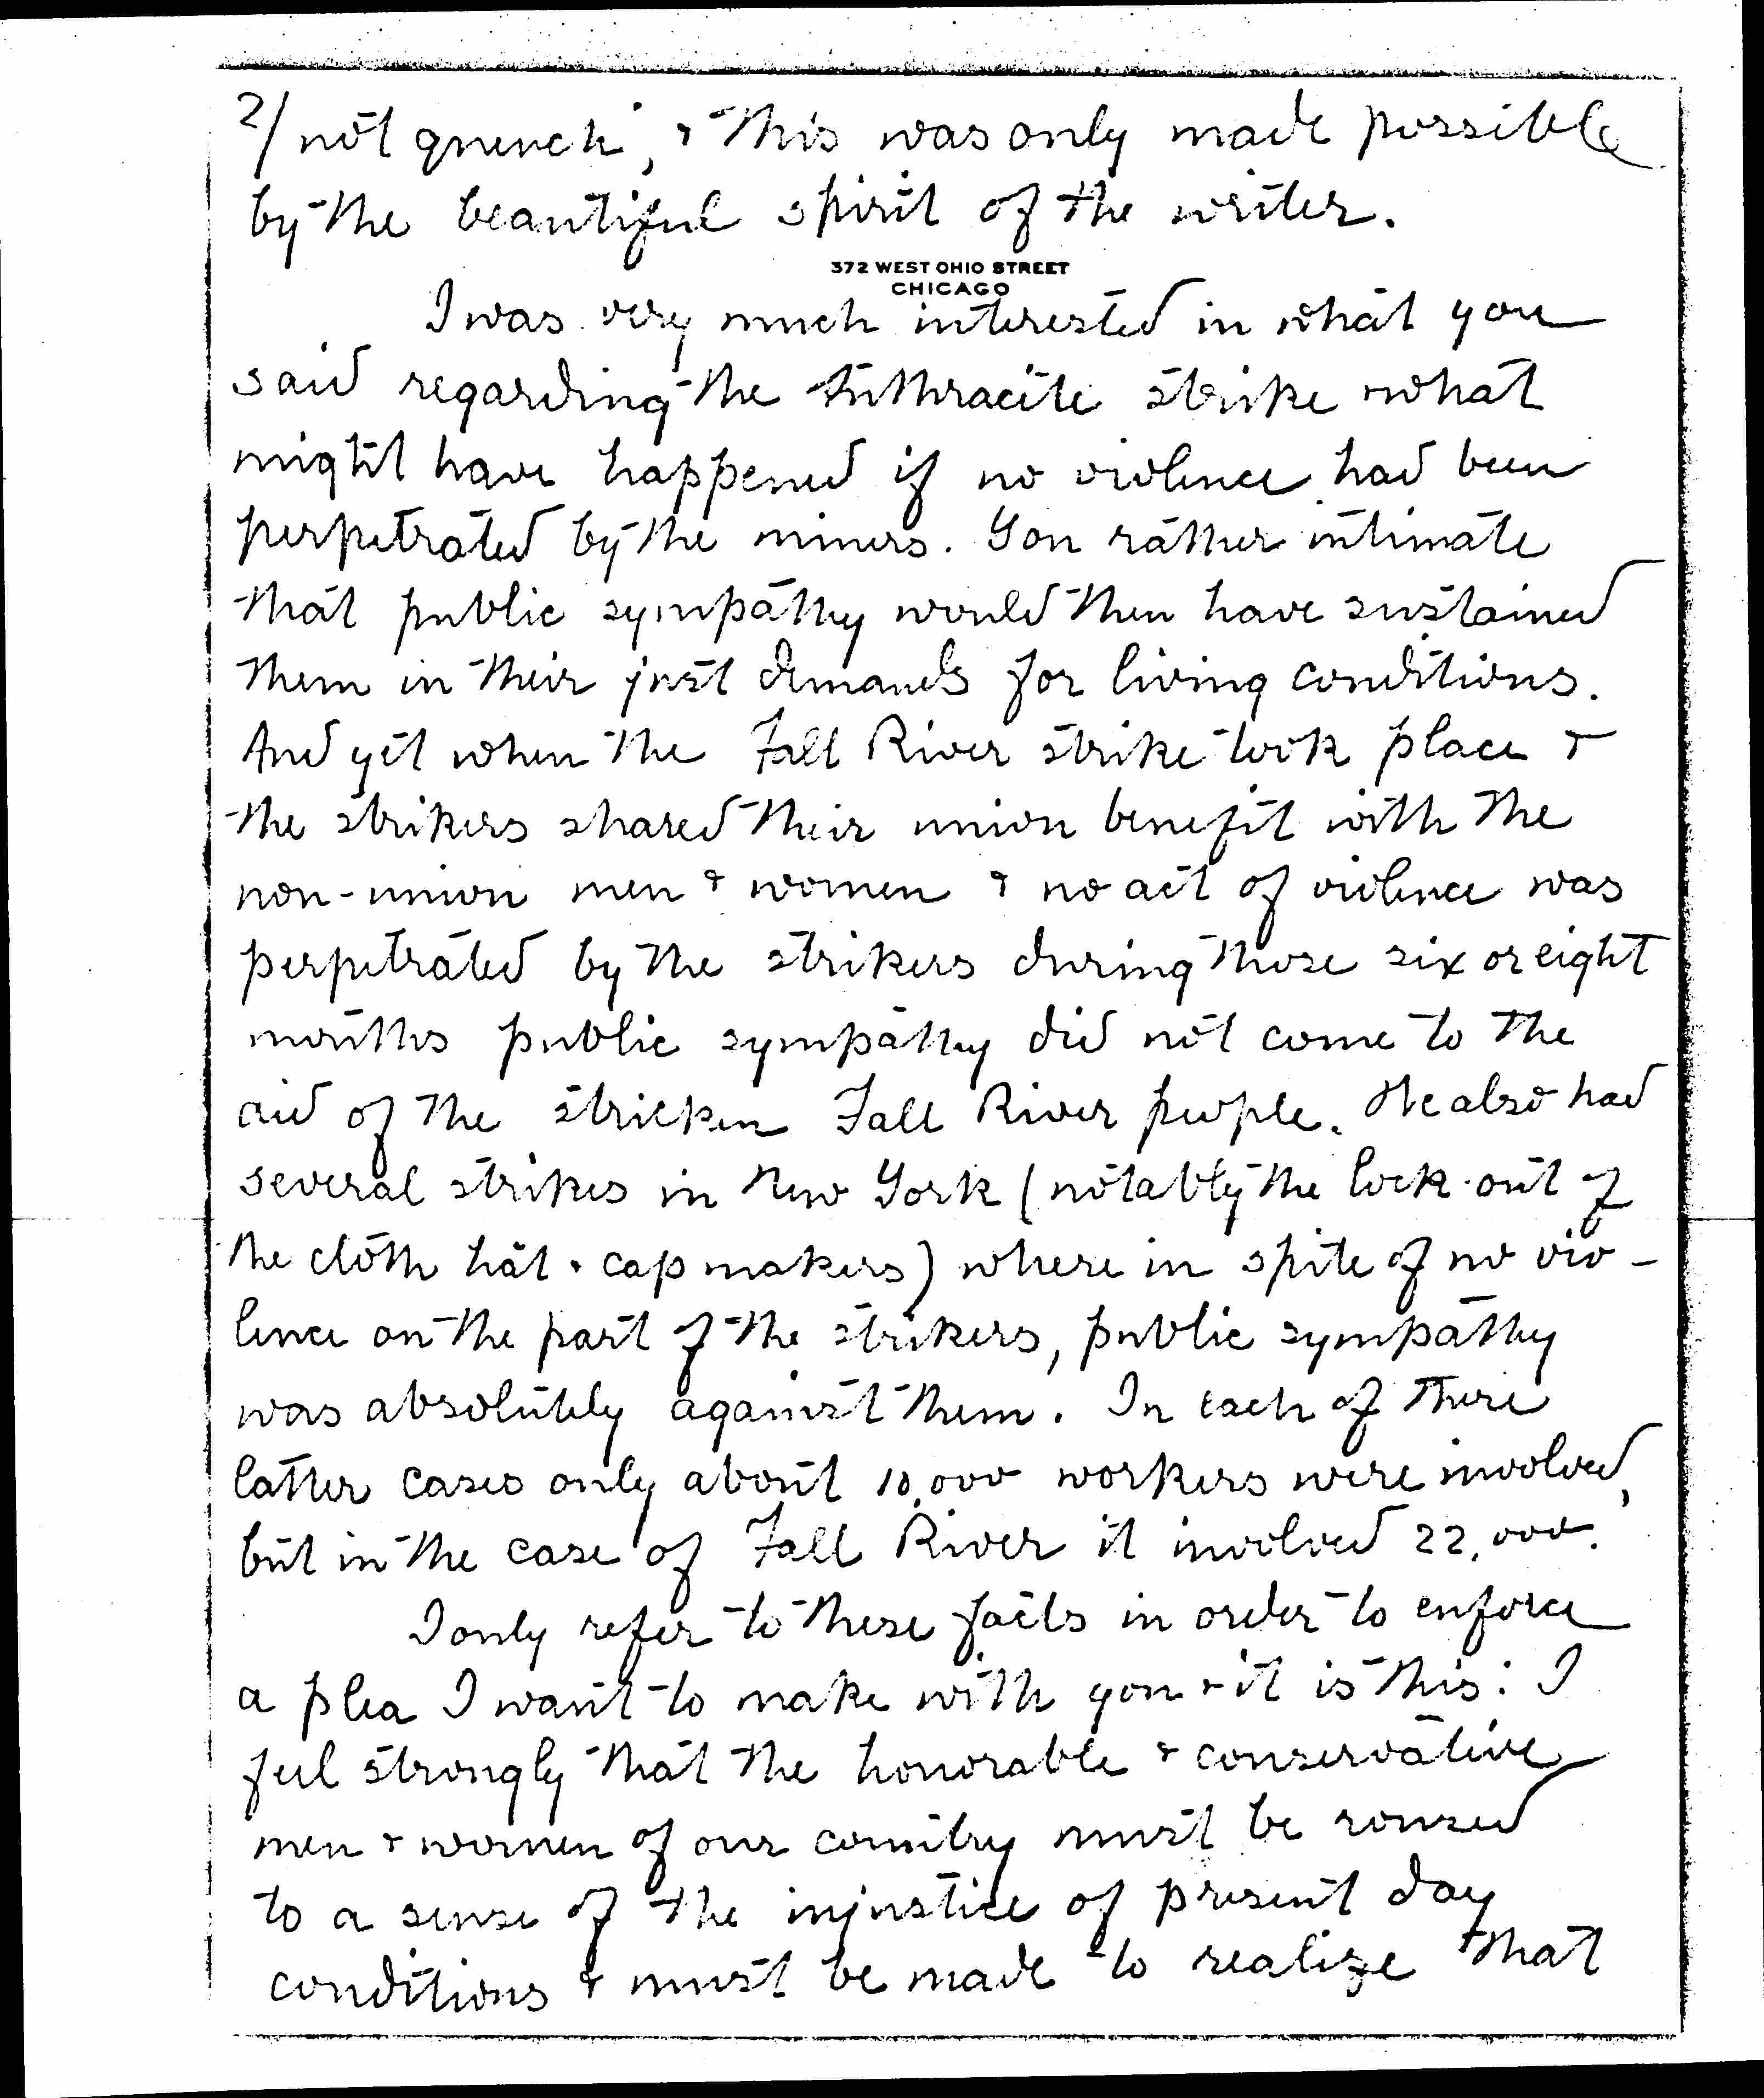 2/ not quench", & this was only made possible
by the beautiful spirit of the writer.
372 WEST OHIO STREET
CHICAGO
I was very much interested in what you
said regarding the Anthracite strike & what
might have happened if no violence had been
perpetrated by the miners. You rather intimate
that public sympathy would then have sustained
them in their just demands for living conditions.
And yet when the Fall River strike took place &
the strikers shared their union benefit with the
non-union men & women & no act of violence was
perpetrated by the strikers during those six or eight
months public sympathy did not come to the
aid of the stricken Fall River people. We also had
several strikes in New York (notably the lock-out of
the cloth hat & cap makers) where in spite of no vio-
lence on the part of the strikers, public sympathy
was absolutely against them. In each of these
latter cases only about 10,000 workers were involved,
but in the case of Fall River it involved 22,000.
I only refer to these facts in order to enforce
a plea I want to make with you & it is this: I
feel strongly that the honorable & conservative
men & women of our country must be roused
to a sense of the injustice of present day
conditions & must be made to realize that